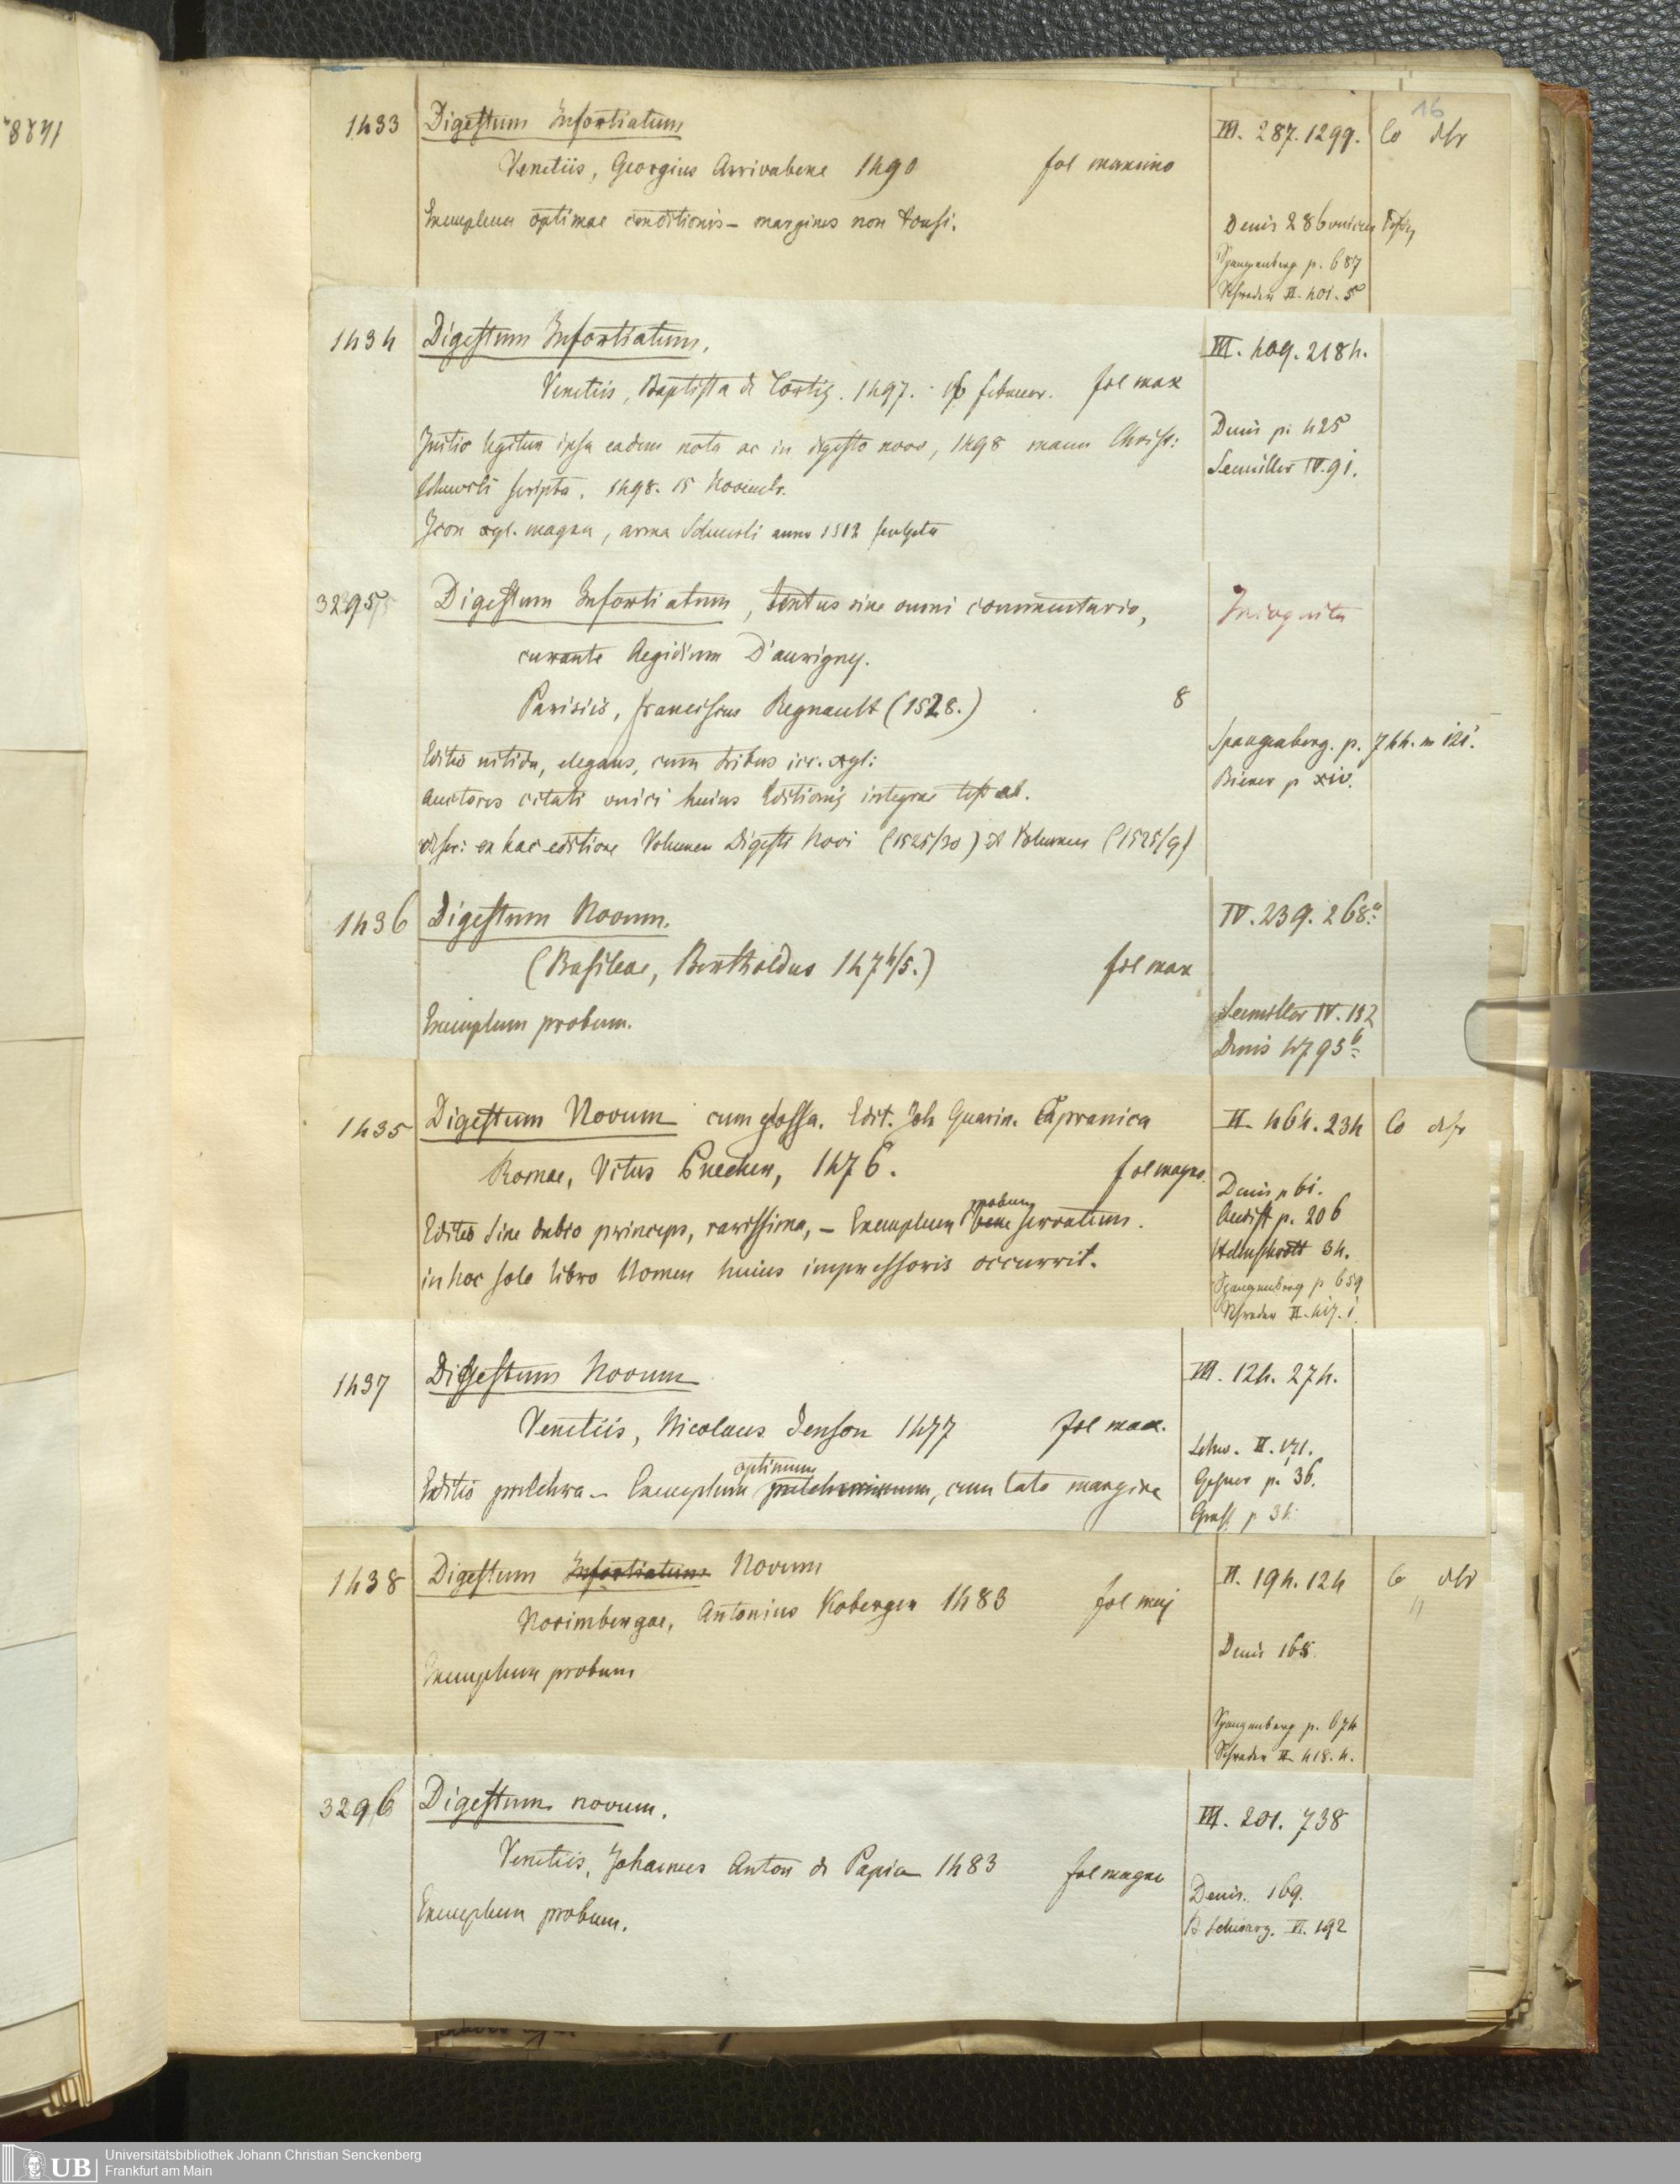 16
1433 Digestum Infortiatum III. 287. 1299. Co
Venetiis, Georgius Arrivabene 1490 fol maximo
Exemplum optimae conditionis – margines non tonsi. Denis 286
Spangenberg p. 687
Schrader II. 401. 5
1434 Digestum Infortiatum, III. 409. 2184.
Venetiis, Baptista de Tortis. 1497. februar. fol max
Initio legitur ipsa eadem nota ac in digesto novo, 1498 manu Christ: Denis p. 425
Scheurli scripta. 1498. 15 Novembr. Seemiller IV. 91.
Icon xyl. magna, arma Scheurli anno 1512 sculpta
3295 Digestum Infortiatum, textus sine omni commentario, Incognita
curante Aegidium D'aurigny.
Parisiis, franciscus Regnault (1528.) 8
Editio nitida, elegans, cum tribus icc. xyl: Spangenberg. p. 744. n 121.
Auctores citati unici huius Editionis integrae Biener p xiv.
ex hac editione Volumen Digesti Novi (1525/30) et Volumen (1525/9)
1436 Digestum Novum. IV. 239. 268.
(Basileae, Bertholdus 1474/5.) fol max
Exemplum probum. Seemiller IV. 132
Denis 4795
1435 Digestum Novum cum glossa. Edit. Joh Guarin. Capranica II. 464. 234 Co
Romae, Vitus Puecher, 1476. fol magno. Denis p 61.
Editio sine dubio princeps, rarissima, – Exemplum bene probum servatum. Audifr p. 206
in hoc solo libro Nomen huius impressoris occurrit. Helmschrott 34.
Spangenberg p 659
Schrader II. 417. 1.
1437 Digestum Novum III. 124. 274.
Venetiis, Nicolaus Jenson 1477 fol max.
Editio pulchra – Exemplum pulcherrimum optimum, cum lato margine Gesner p. 36.
1438 Digestum Infortiatum Novum II. 194. 124 Co
Norimbergae, Antonius Koberger 1483 fol maj
Exemplum probum Denis 168.
Spangenberg p. 674
Schrader II 418. 4.
3296 Digestum novum. III. 201. 738
Venetiis, Johannes Anton de Papia 1483 fol magno
Exemplum probum. Denis. 169.
VI. 192
Universitätsbibliothek Johann Christian Senckenberg
Frankfurt am Main
UB